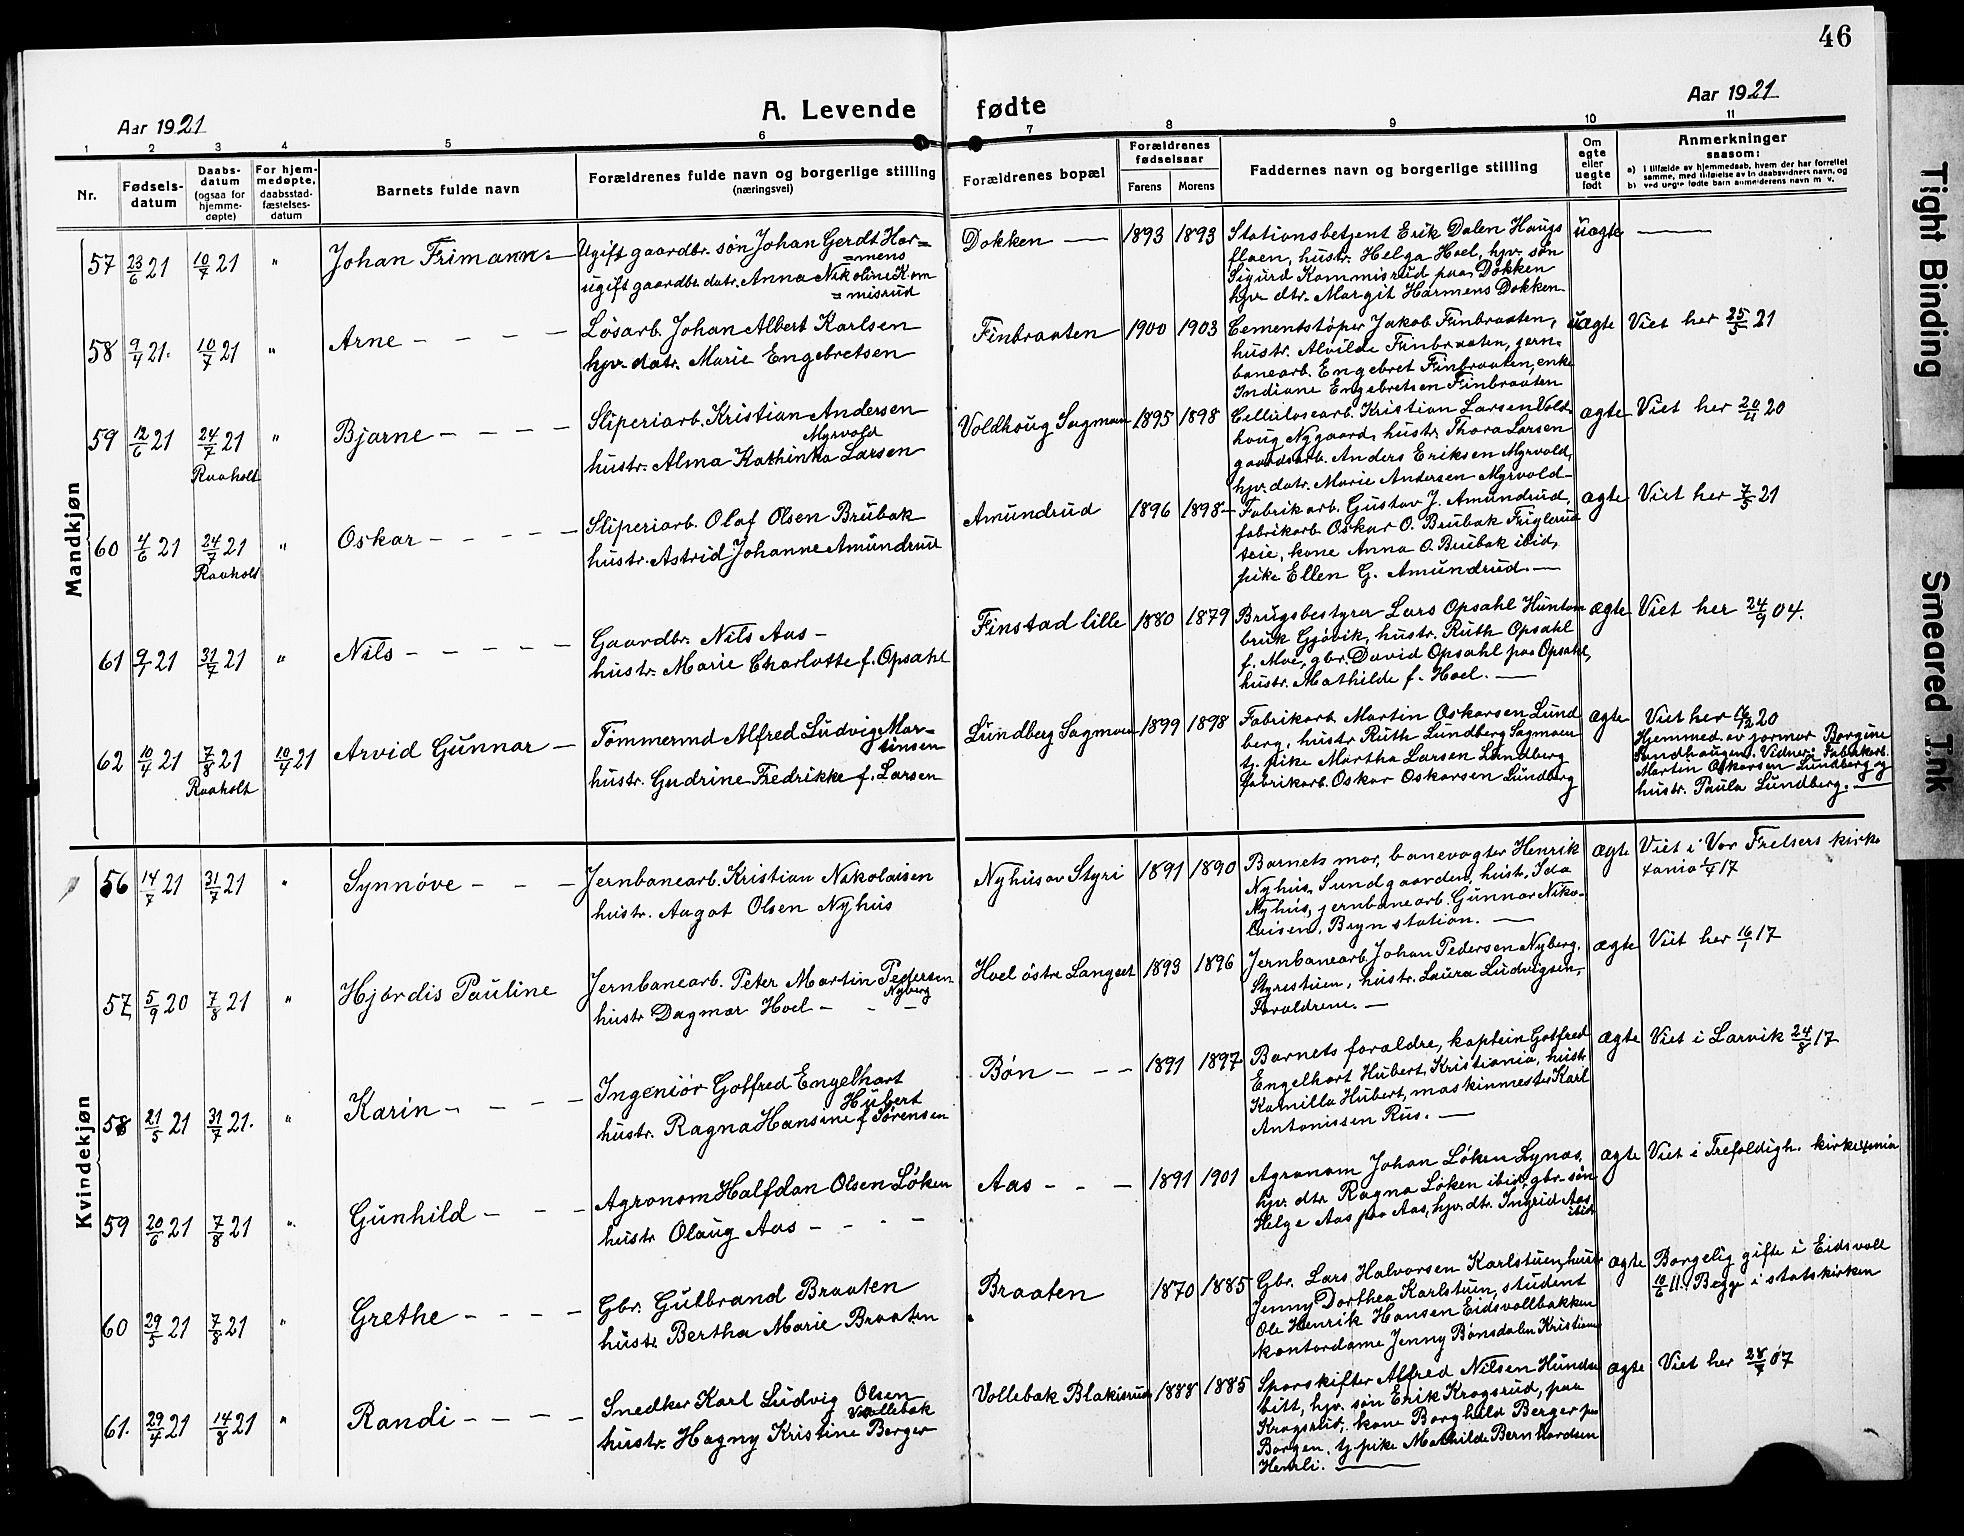 46
Aar 1921
A. Levende fødte
Aar 1921
1 2 3 4 5 6 7 8 9 10 11
Nr.
Fødsels-
datum
Daabs-
datum
(ogsaa for
hjemme-
døpte)
For hjem-
medøpte,
daabsstad-
fæstelses-
datum
Barnets fulde navn
Forældrenes fulde navn og borgerlige stilling
(næringsvei)
Forældrenes bopæl
Forældrenes
fødselsaar
Farens Morens
Faddernes navn og borgerlige stilling
Om
egte
eller
uegte
født
Anmerkninger
saasom:
a) i tilfælde av hjemmedaab, hvem der har forrettet
samme, med tilføielse av to daabsvidners navn, og
b) ved uegte fødte barn anmelderens navn m. v.
Mandkjøn
57 23/6 21 10/7 21 " Johan Frimann -
Ugift gaardbr. søn Johan Gerdt Har=
=mens
ugift gaardbr. datr. Anna Nikoline Kom
=misrud
Dokken — 1893 1893
Stationsbetjent Erik Dalen Haugs
floen, hustr. Helga Hoel, hjv. søn
Sigurd Kommisrud paa Dokken
hjv. dtr. Margit Harmens Dokken
uægte —
58 9/4 21. 10/7 21 " Arne - - - -
Løsarb. Johan Albert Karlsen
hjv. datr. Marie Engebretsen
Finbraaten 1900 1903
Cementstøper Jakob Finbraaten,
hustr. Alvilde Finbraaten, jern-
banearb. Engebret Finbraaten, enke
Indiane Engebretsen Finbraaten
uægte Viet her 25/5 21
59 12/6 21 24/7 21 " Bjarne - - - -
Raaholt
Sliperiarb. Kristian Andersen
Myrvold
hustr. Alma Kathinka Larsen
Voldhoug Sagmoen 1895 1898
Cellulosearb. Kristian Larsen Vold
houg Nygaard, hustr. Thora Larsen
gaardsarb. Anders Eriksen Myrvold,
hjv. datr. Marie Andersen Myrvold -
ægte Viet her 20/11 20
60 4/6 21 24/7 21 " Oskar - - - - -
Raaholt
Sliperiarb. Olaf Olsen Brubak
hustr. Astrid Johanne Amundrud
Amundrud 1896 1898 -
Fabrikarb. Gustav J. Amundrud,
fabrikarb. Oskar O. Brubak
eie, kone Anna O. Brubak ibid,
pike Ellen G. Amundrud. —
ægte Viet her 7/5 21
61 9/7 21 31/7 21 " Nils - - - - -
Gaardbr. Nils Aas -
hustr. Marie Charlotte f. Opsahl
Finstad lille 1880 1879
Brugsbestyrer Lars Opsahl Hunton
bruk Gjøvik, hustr. Ruth Opsahl
f. Moe, gbr. David Opsahl paa Opsahl,
hustr. Mathilde f. Hoel. —
ægte Viet her 24/9 04.
62 10/4 21 7/8 21 10/4 21 Arvid Gunnar -
Raaholt
Tømmermd Alfred Ludvig Mar-
tinsen
hustr. Gudrine Fredrikke f. Larsen
Lundberg Sagmoen 1899 1898
Fabrikarb. Martin Oskarsen Lund
berg, hustr. Ruth Lundberg Sagmoen
tj. pike Martha Larsen Lundberg
fabrikarb. Oskar Oskarsen Lundberg
ægte Viet her 20
Hjemmed. av jormor Borgine
Sandhaugen. Vidner: Fabrikarb.
Martin Oskarsen Lundberg og
hustr. Paula Lundberg. —
Kvindekjøn
56 14/7 21 31/7 21 " Synnøve - - -
Jernbanearb. Kristian Nikolaisen
hustr. Aagot Olsen Nyhus
Nyhus av Styri 1891 1890
Barnets mor, banevogter Henrik
Nyhus, Sundgaarden, hustr. Ida
Nyhus, jernbanearb. Gunnar Niko-
laisen, Bryn station. —
ægte Viet i Vor Frelsers kirke
xania 1/4 17
57 5/9 20 7/8 21 " Hjørdis Pauline
Jernbanearb. Peter Martin Pedersen
Nyberg
hustr Dagmar Hoel - - -
Hoel østre Langset 1893 1896
Jernbanearb. Johan Pedersen Nyberg,
Styrestuen, hustr. Laura Ludvigsen,
Forældrene. —
ægte Viet her 16/1 17
58 21/5 21 31/7 21. " Karin - - - -
Ingeniør Gotfred Engelhart
Hubert
hustr. Ragna Hansine f. Sørensen
Bøn - - - 1891 1897
Barnets forældre, kaptein Gotfred
Engelhart Hubert, Kristiania, hustr
Kamilla Hubert, maskinmester Karl
Antonissen Rus. —
ægte Viet i Larvik 24/8 17
59 20/6 21 7/8 21 " Gunhild - - -
Agronom Halfdan Olsen Løken
hustr Olaug Aas - - - -
Aas - - - 1891 1901
Agronom Johan Løken Lynaas,
hjv. dtr Ragna Løken ibid, gbr. søn
Helge Aas paa Aas, hjv. dtr. Ingrid Aas
ibid
ægte Viet i Trefoldigh. kirke xania
60 29/5 21 7/8 21 " Grethe - - - -
Gbr. Gulbrand Braaten
hustr. Bertha Marie Braaten
Braaten 1870 1885
Gbr. Lars Halvorsen Karlstuen, hustr
Jenny Dorthea Karlstuen, student
Ole Henrik Hansen Eidsvollbakken
kontordame Jenny Bønsdalen Kristiania
ægte Borgelig gifte i Eidsvoll
10/6 11. Begge i statskirken
61. 29/4 21 14/8 21 " Randi - - - -
Snedker Karl Ludvig Olsen
Vollebæk
hustr. Hagny Kristine Berger
Vollebæk Blakisrud 1888 1885
Sporskifter Alfred Nilsen Hunds
bitt, hjv. søn Erik Krogsrud, paa
Krogsrud, kone Borghild Berger paa
Borgen, tj. pike Mathilde Bernhardsen
Hemli. —
ægte Viet her 28/7 07
Tight Binding
Smeared Ink